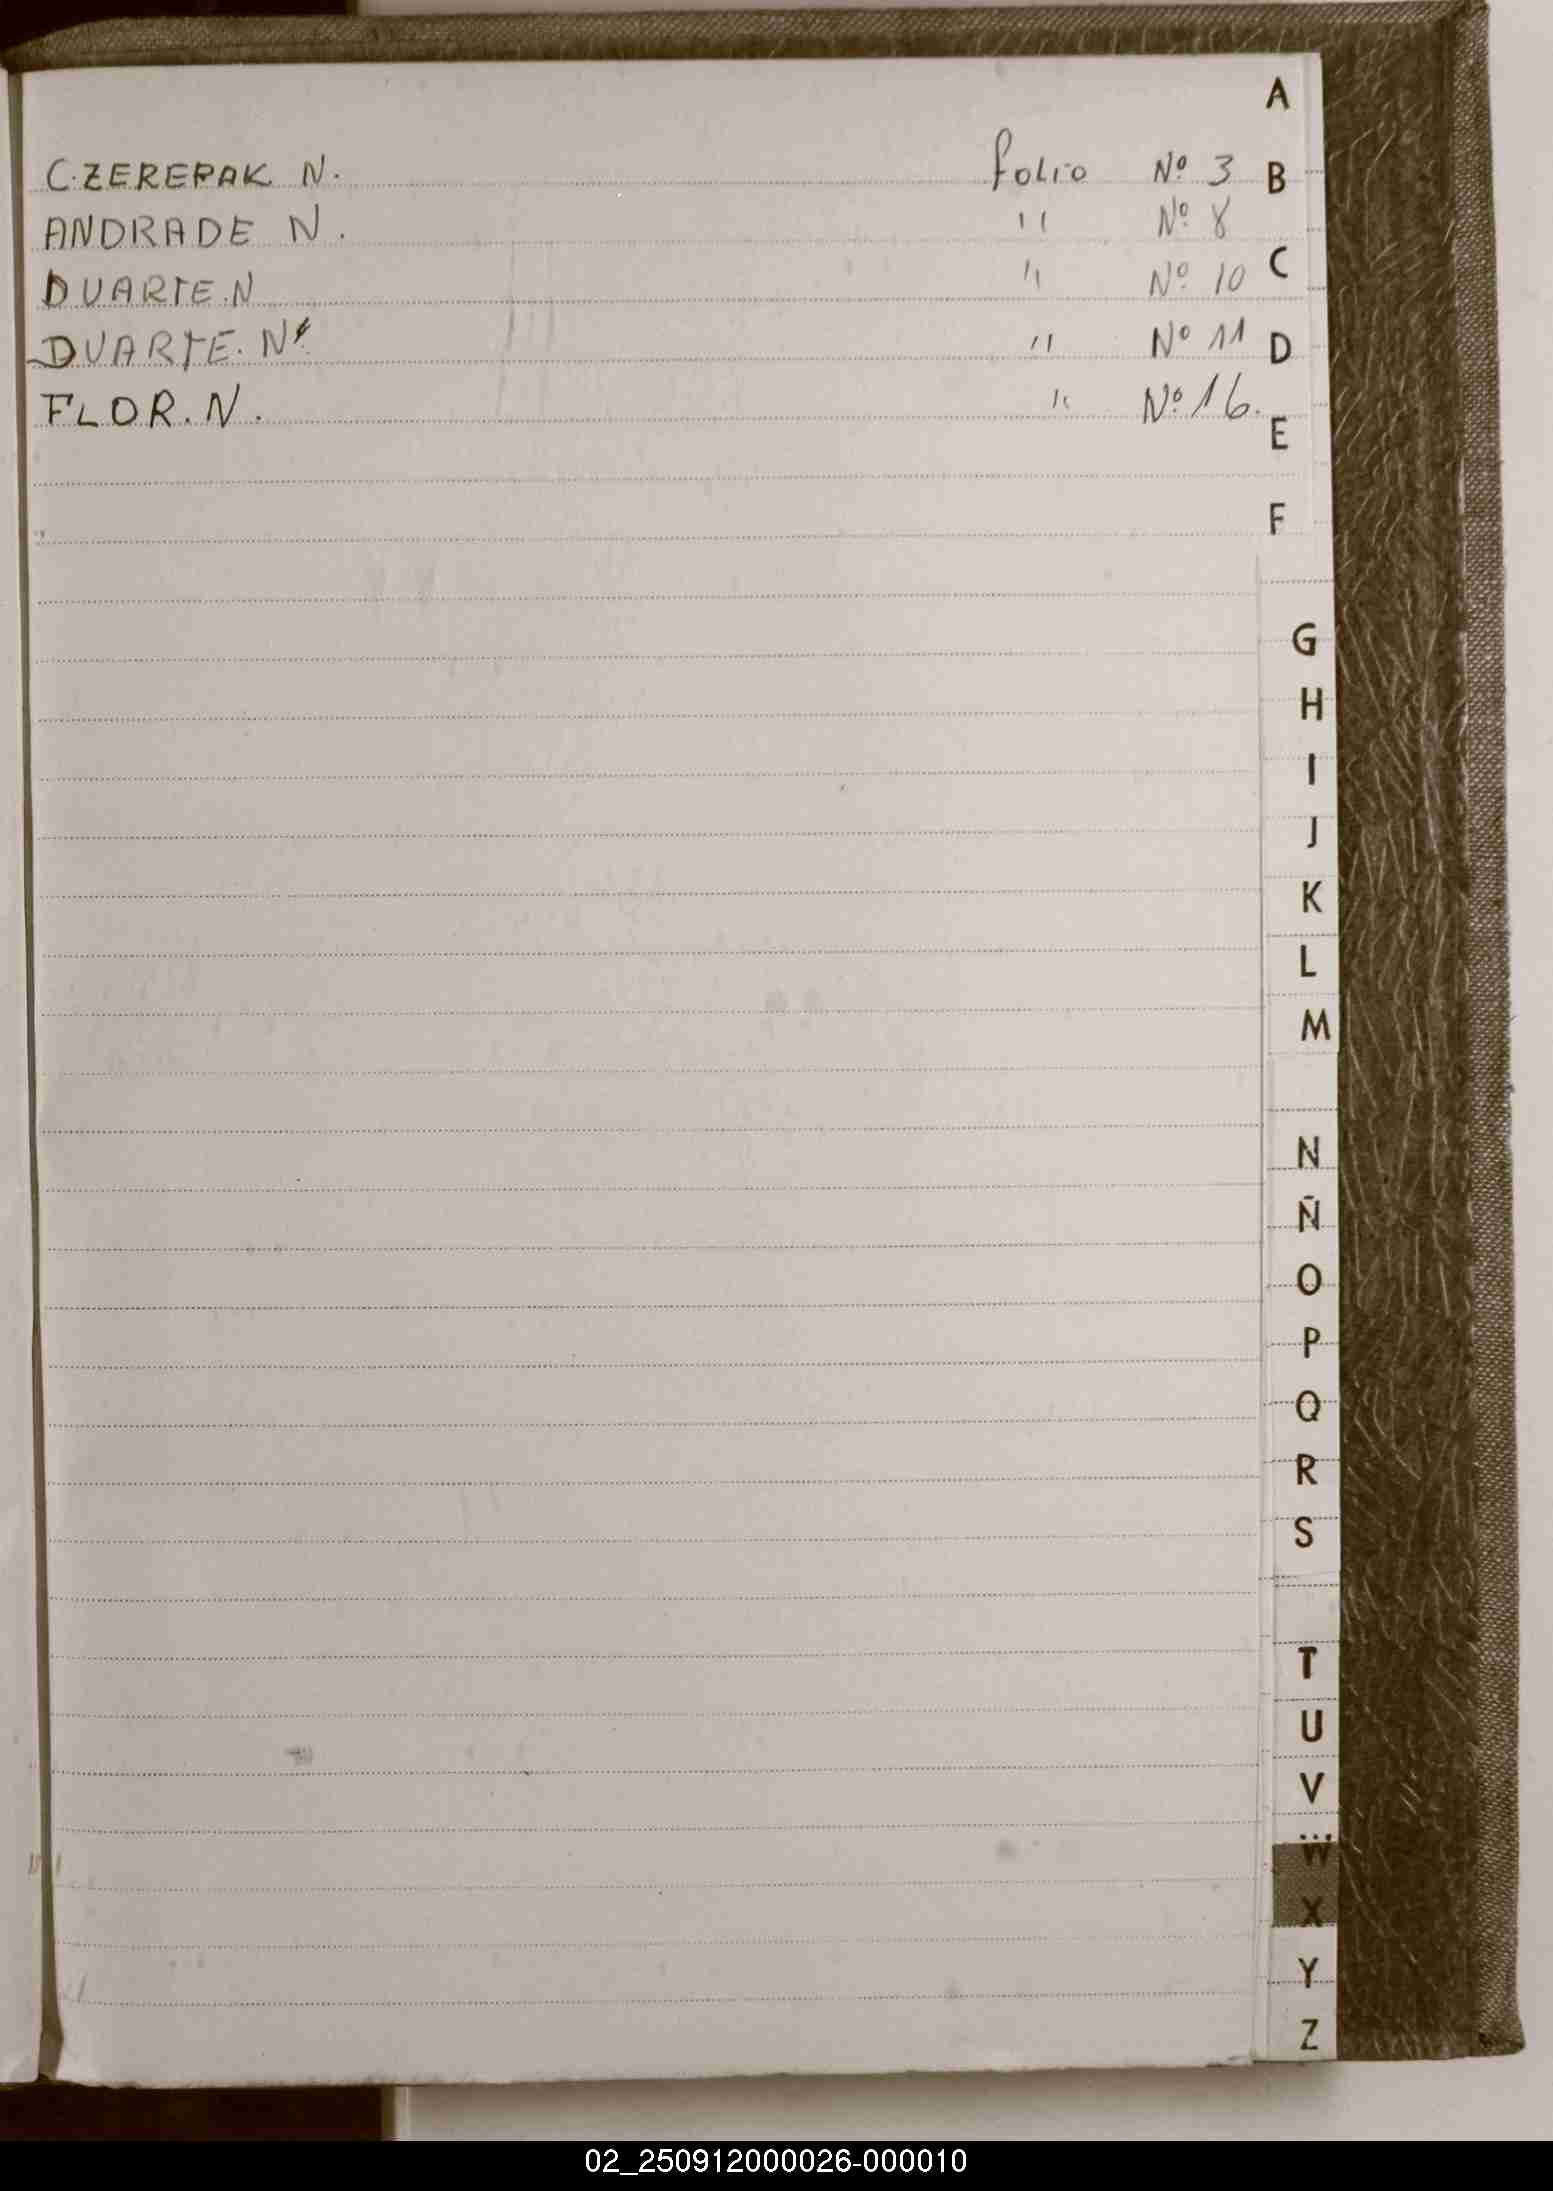 C.ZEREPAK N. folio Nº 3
ANDRADE N. " Nº 8
DUARTE.N " Nº 10
DUARTE. N " Nº 11
FLOR.N. " Nº 16.
A
B
C
D
E
F
G
H
I
J
K
L
M
N
Ñ
O
P
Q
R
S
T
U
V
W
X
Y
Z
02_250912000026-000010